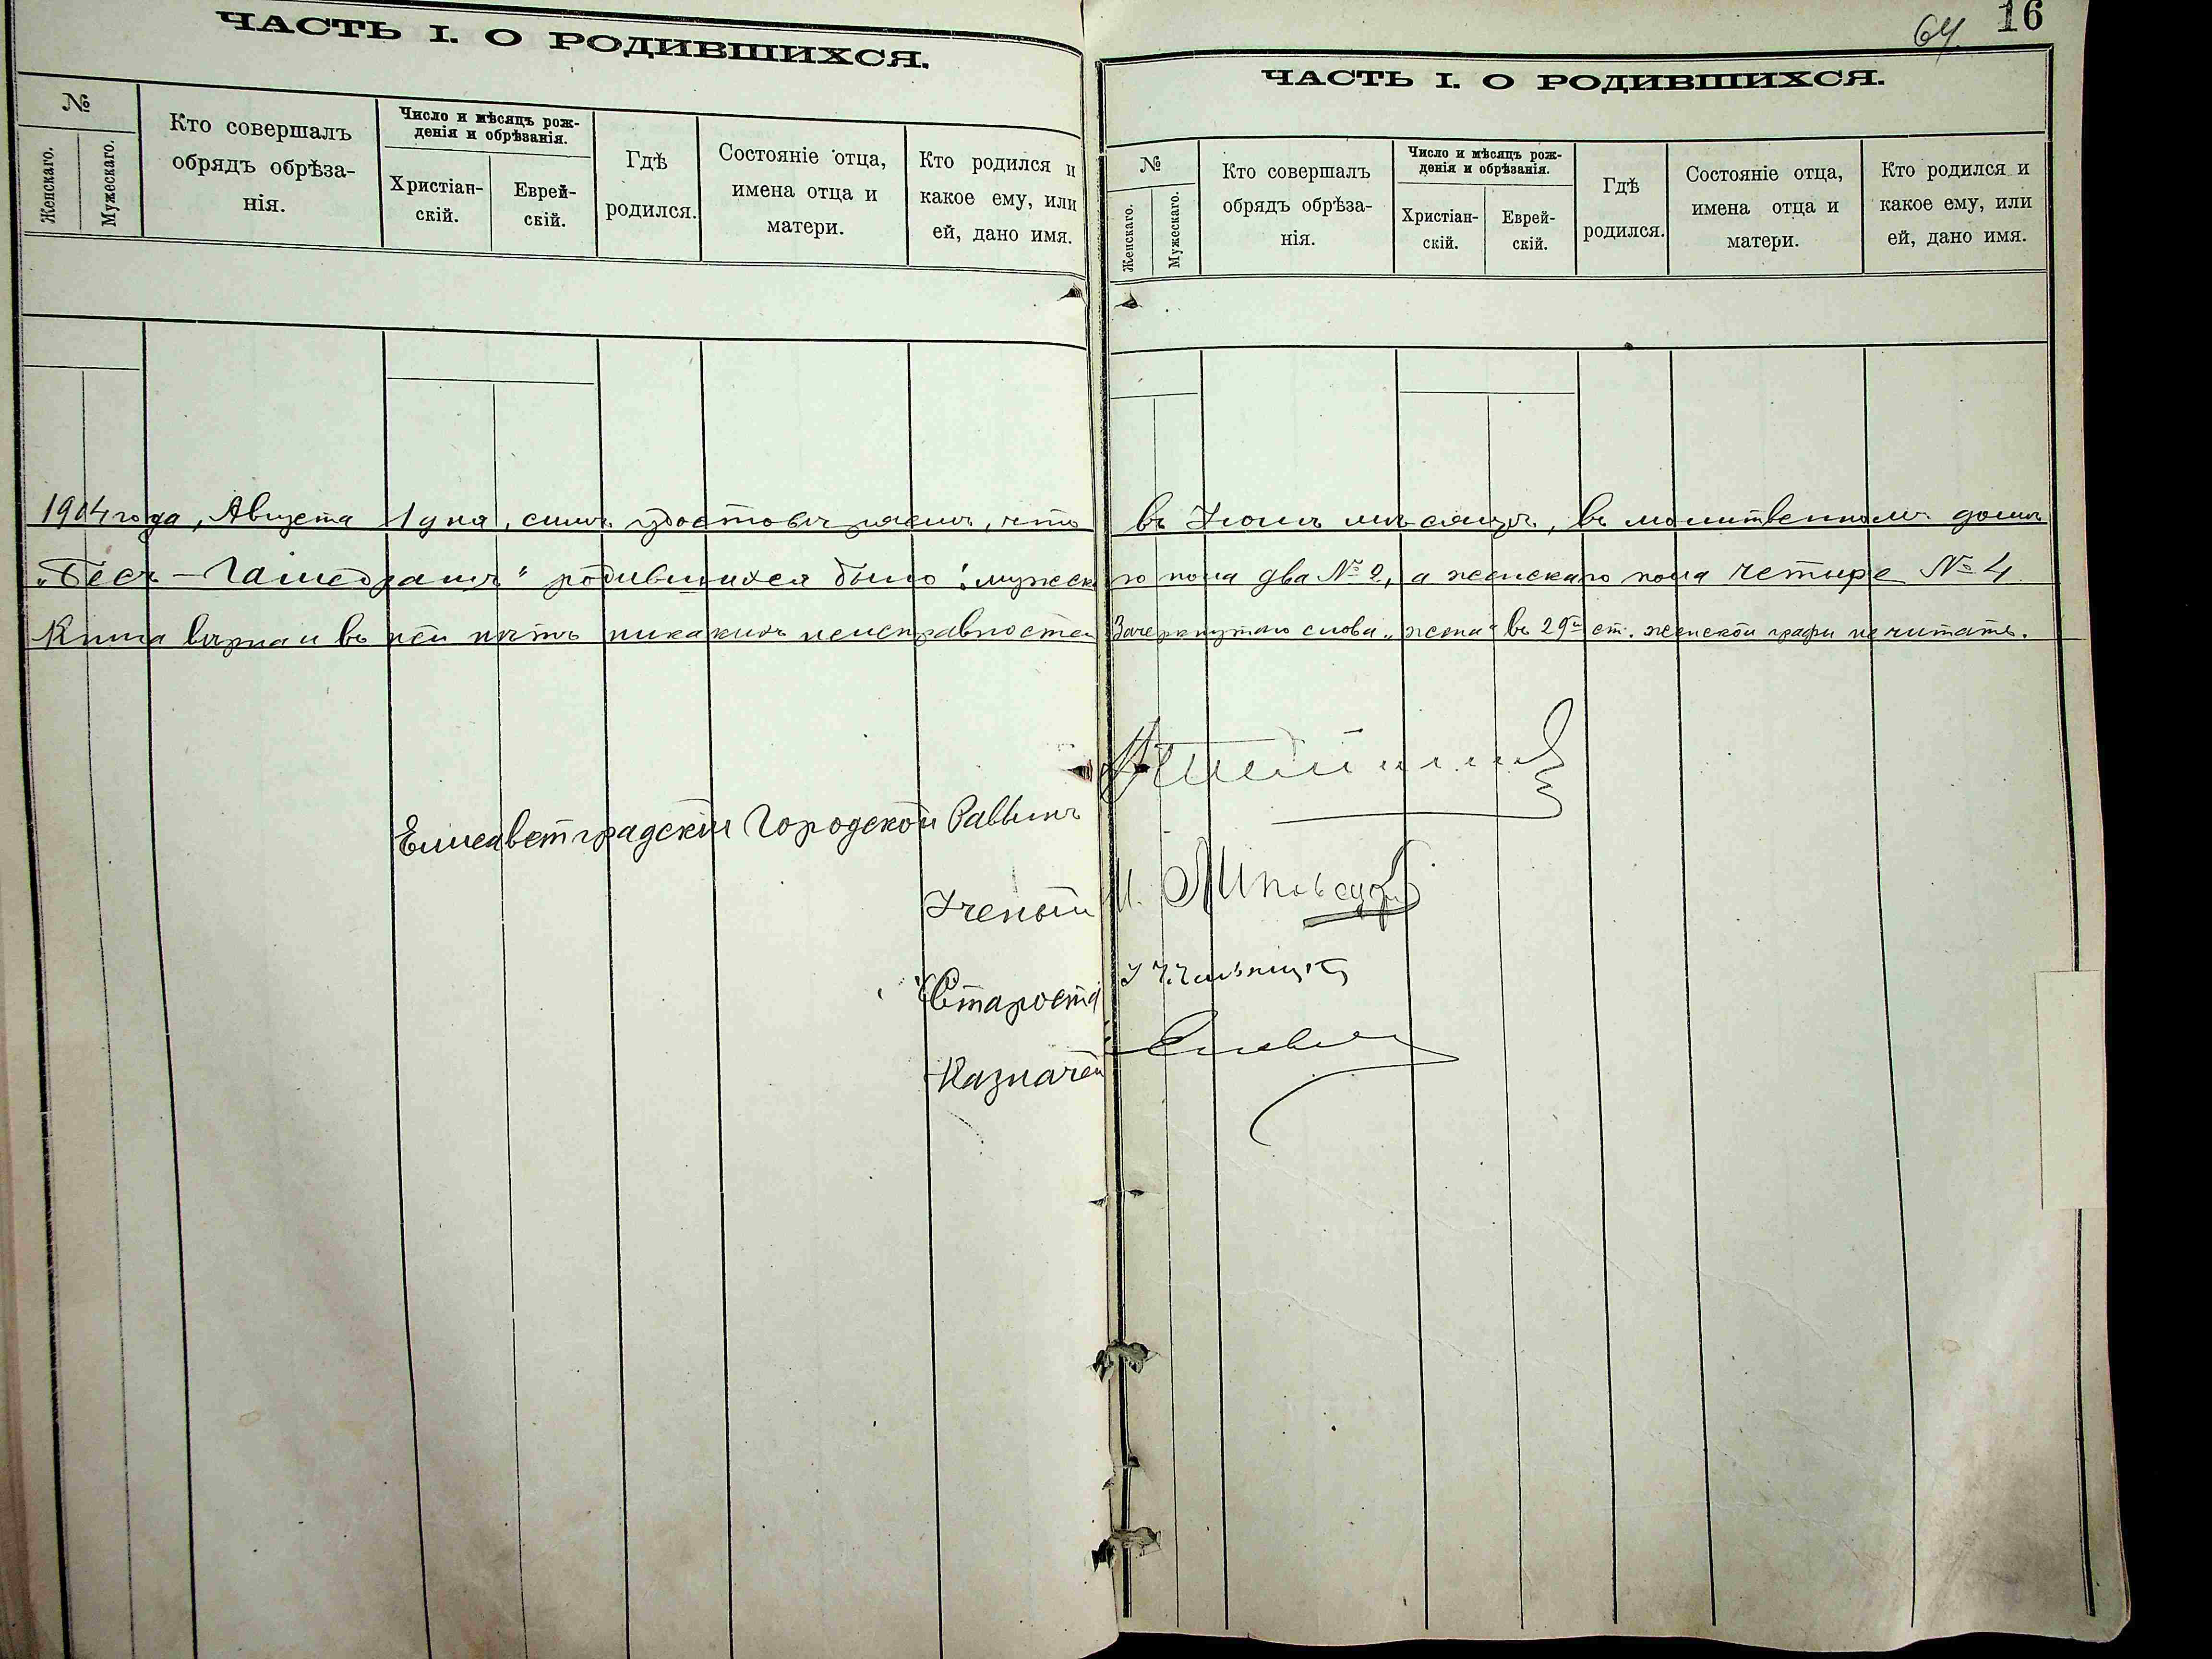 ЧАСТЬ I. О РОДИВШИХСЯ.
№
Женскаго.
Мужескаго.
Кто совершалъ
обрядъ обрѣза-
нія.
Число и мѣсяцъ рож-
денія и обрѣзанія.
Христіан-
скій.
Еврей-
скій.
Гдѣ
родился.
Состояніе отца,
имена отца и
матери.
Кто родился и
какое ему, или
ей, дано имя.
64 16
ЧАСТЬ I. О РОДИВШИХСЯ.
№
Женскаго.
Мужескаго.
Кто совершалъ
обрядъ обрѣза-
нія.
Число и мѣсяцъ рож-
денія и обрѣзанія.
Христіан-
скій.
Еврей-
скій.
Гдѣ
родился.
Состояніе отца,
имена отца и
матери.
Кто родился и
какое ему, или
ей, дано имя.
1904 года, Августа 1 дня, симъ удостовѣряемъ, что въ мѣсяцѣ, въ молитвенномъ домѣ
"Бесъ-Гамедрашъ" родившихся было: мужескаго пола два № 2, а женскаго пола четыре № 4.
Книга вѣрна и въ ней нѣтъ никакихъ неисправностей Зачеркнутаго слова "жена" въ 29й ст. женской графы не читать.
Елисаветградскій Городской Раввинъ
Ученый И. Липовецкій
Староста
Казначей